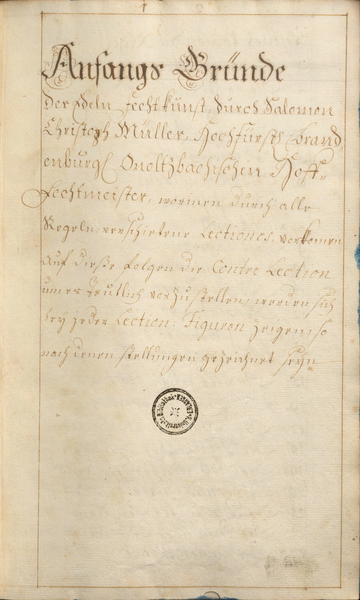 Anfangs Gründe
Der Edeln Fechtkunst durch Salomon
Christoph Müller, Hochfürstl. Brand
enburgl. Onoltzbachischen Hoff-
Fechtmeister, worinen durch alle
Regeln verschietene Lectiones, vorkomen
auf dieße folgen die Contre Lection
um es deutlich vorzustellen, werden sich
bey jeder Lection Figuren zeigen so
nach denen stellungen gezeichnet seyn